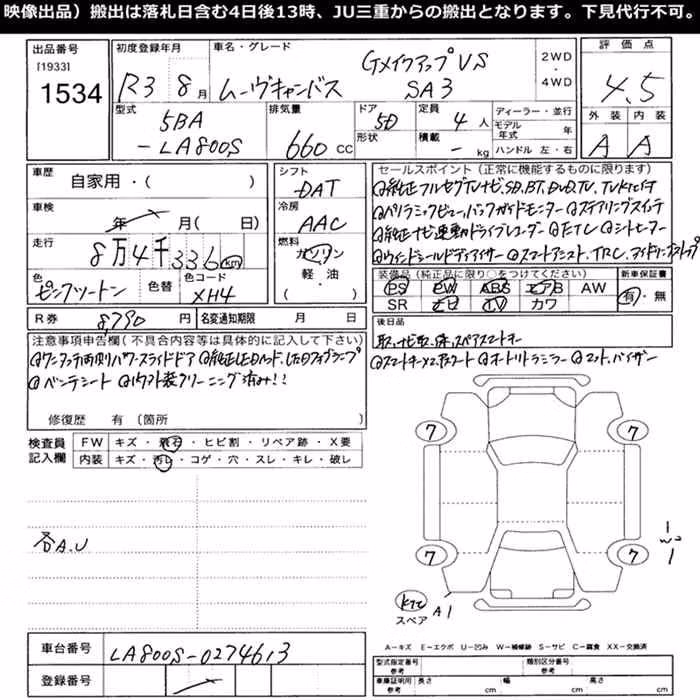 映像出品）搬出は落札日含む4日後13時、JU三重からの搬出となります。下見代行不可。
出品番号
[1933]
1534
初度登録年月
R3 8月
車名・グレード
Gメイクアップ VS
ムーヴキャンバス SA3
2WD
4WD
評価点
4.5
外装 内装
A A
型式
5BA
-LA800S
排気量
660 CC
ドア
5D
形状
定員
4人
積載
- kg
ディーラー・並行
モデル年式 年
ハンドル 左・右
車歴
自家用・（ ）
車検
年 月（ 日）
走行
8万4千336 km
色
ピンクツートン
色替
色コード
XH4
シフト
DAT
冷房
AAC
燃料
ガソリン
軽・油
（ ）
セールスポイント（正常に機能するものに限ります）
◎純正フルセグTVナビ,SD,BT,DVD,TV,
◎パノラミックビュー,バックガイドモニター ◎ステアリングスイッチ
◎純正ナビ連動ドライブレコーダー ◎ETC ◎シートヒーター
◎ウインドシールドディアイサー ◎スマートアシスト,TRC,アイドリングストップ
装備品（純正品に限り○をつけてください）
PS PW ABS エアB AW
SR ナビ TV カワ
新車保証書
有・無
R券 8,790 円
名変通知期限 月 日
後日品
取,ナビ取,保,スペアスマートキー
注意事項申告欄（不具合箇所等は具体的に記入して下さい）
◎ワンタッチ両側パワースライドドア ◎純正LEDヘッド,LEDフォグランプ
◎ベンチシート ◎内外装クリーニング済み!!
◎スマートキー×2,プッシュスタート ◎オートリトラミラー ◎マット,バイザー
修復歴 有（箇所
検査員記入欄
FW キズ・飛石・ヒビ割・リペア跡・X要
内装 キズ・汚レ・コゲ・穴・スレ・キレ・破レ
各A.U
7 7
7 7
W1
スペア
A1
車台番号 LA800S-0274613
登録番号
A－キズ E－エクボ U－凹み W－補修跡 S－サビ C－腐食 XX－交換済
型式指定番号 参考
類別区分番号 参考
車庫証明用 参考 長さ cm 幅 cm 高さ cm